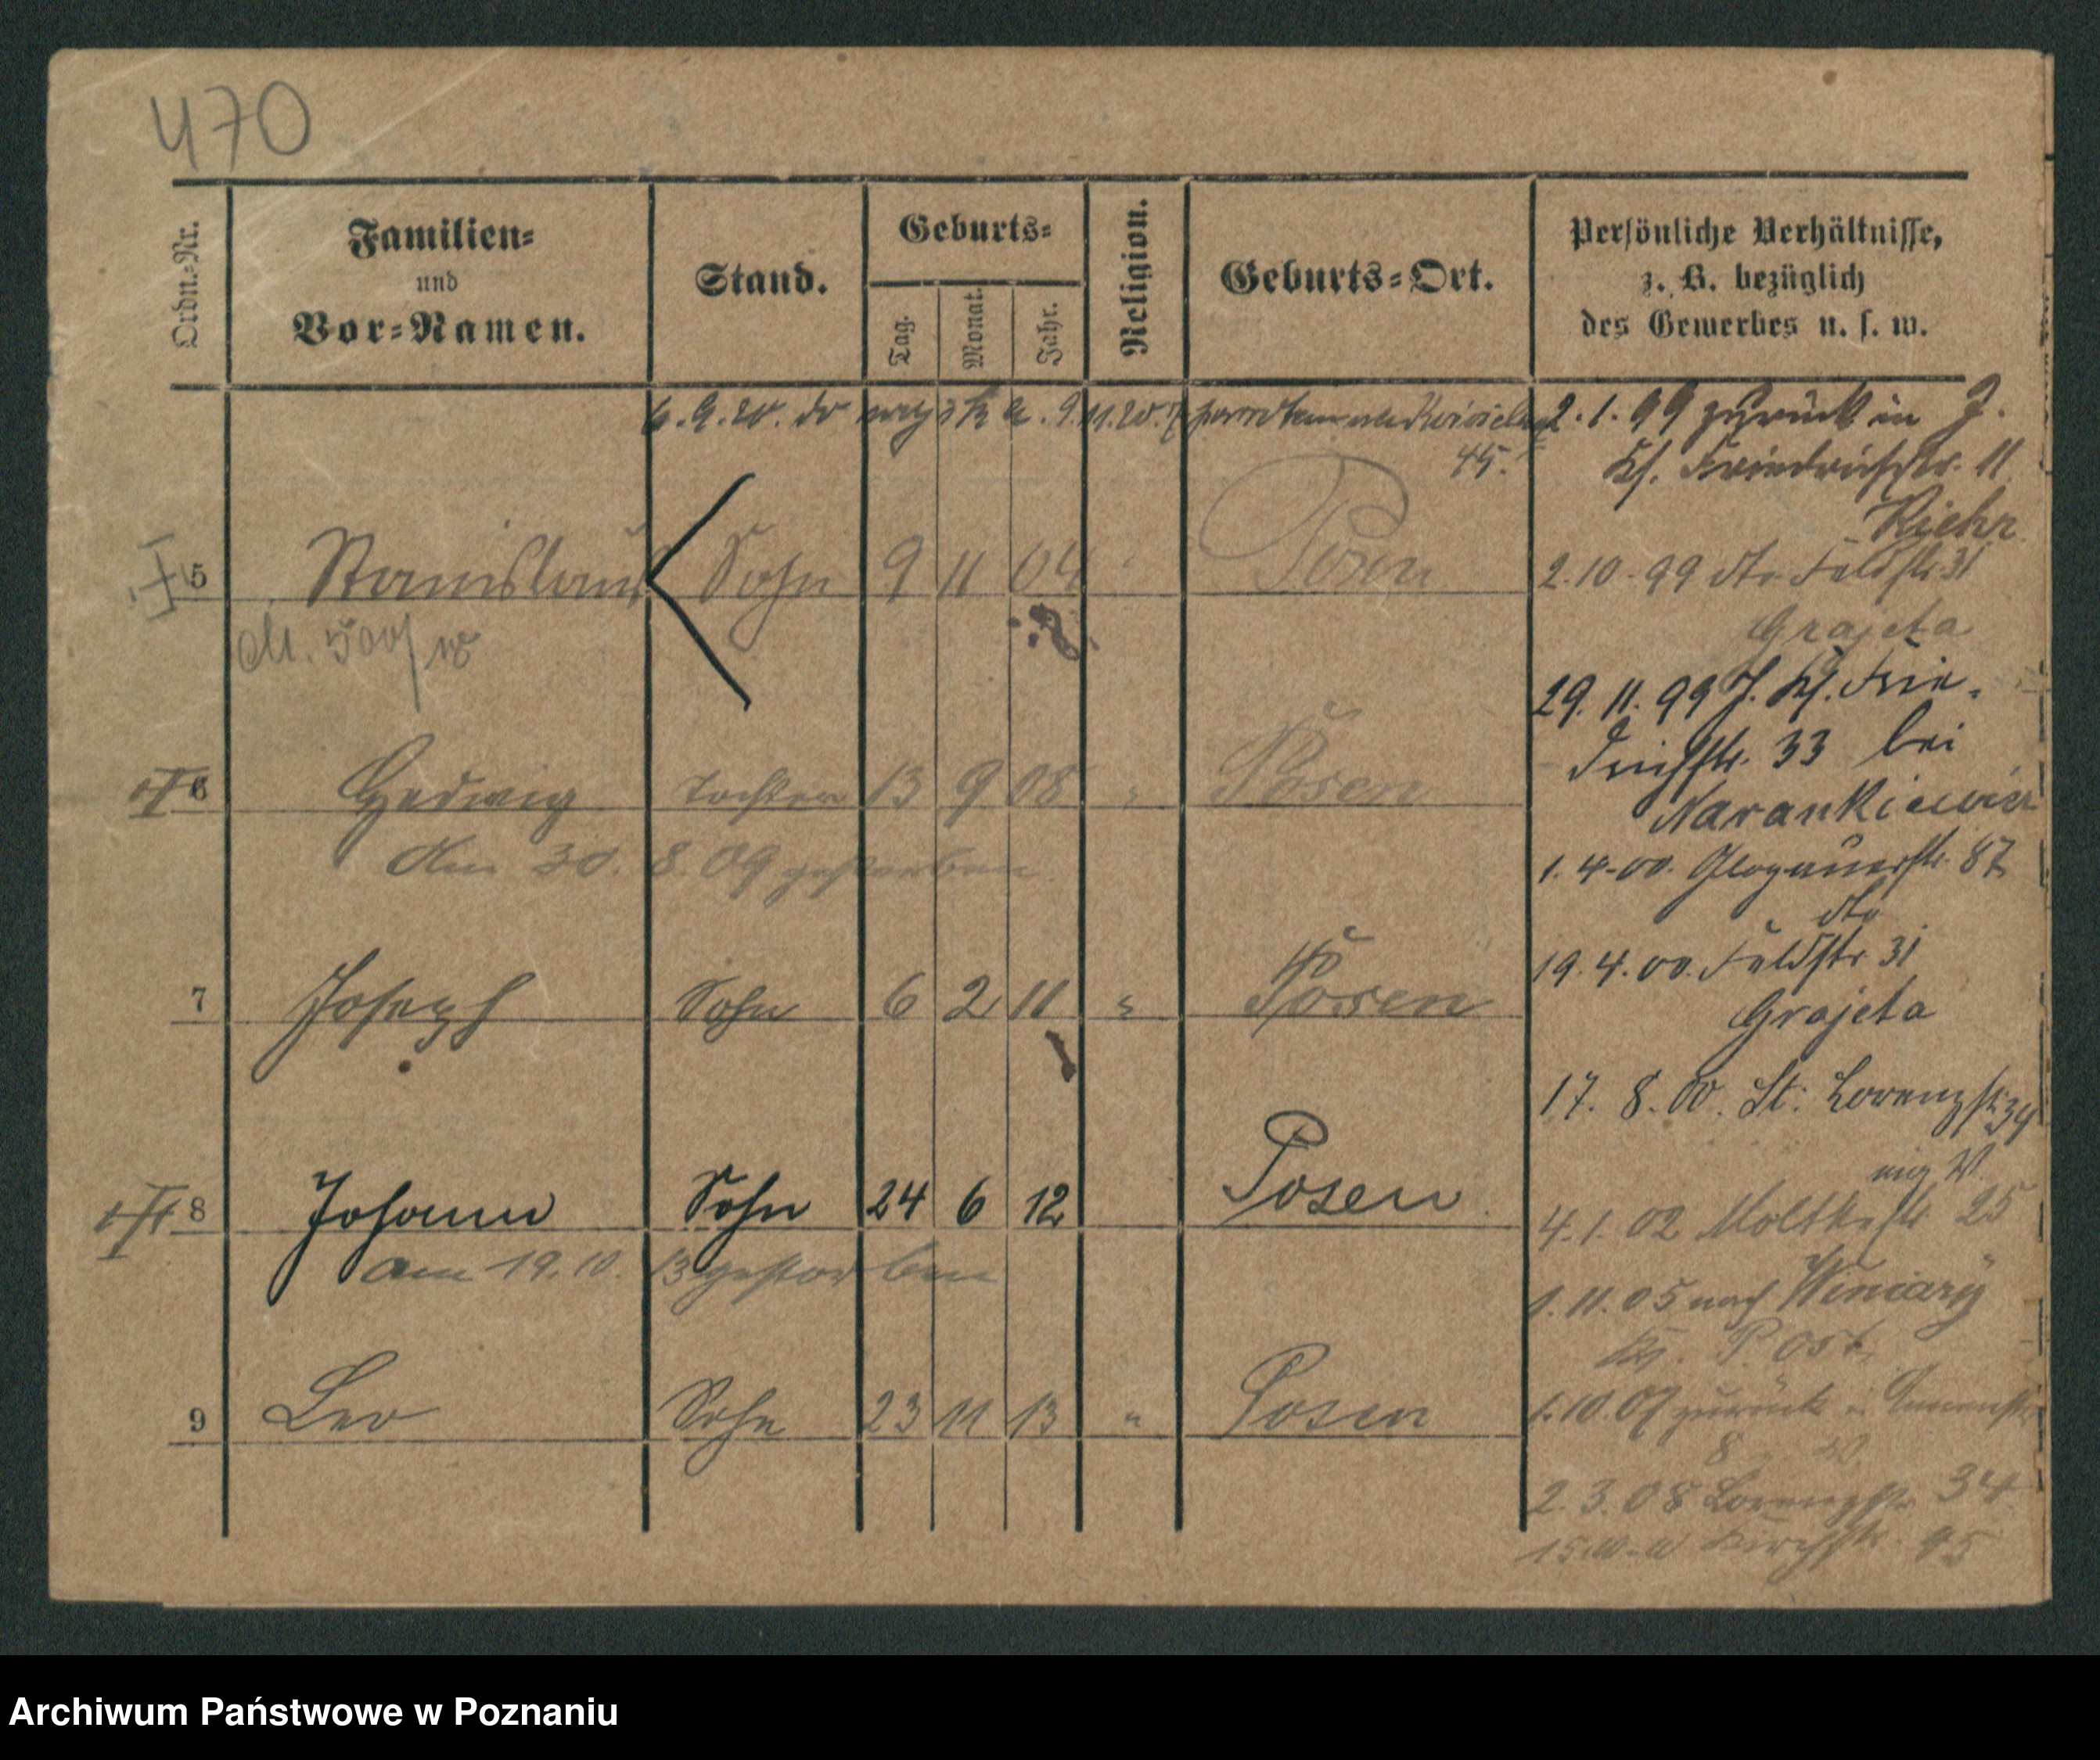 470
Ordn.-Nr.
Familien-
und
Vor-Namen.
Stand.
Geburts-
Tag.
Monat.
Jahr.
Religion.
Geburts-Ort.
Persönliche Verhältnisse,
z. B. bezüglich
des Gewerbes u. s. w.
6.9.20. do 9.11.20.
45.
2.1.99 zurück in J.
Kl. Friedrichstr. 11
Riehr
5 Stanislaus Sohn 9 11 04 Posen
2.10.99 dto Feldstr 31
Grajeta
29.11.99 J. Kl. Frie-
drichstr. 33 bei
6 Hedwig Tochter 13 9 08 " Posen
Narankiewicz
Am 30. 8. 09 gestorben.
1.4.00. Glogauerstr. 87
dto
19.4.00. Feldstr 31
7 Joseph Sohn 6 2 11 " Posen
Grajeta
17. 8. 00. St. Lorenzstr 34
8 Johann Sohn 24 6 12 Posen
4.1.02 Moltkestr 25
am 19.10.13 gestorben
1.11.05 nach Winiary
Kr. P. Ost.
9 Leo Sohn 23 11 13 " Posen
1.10.07 zurück
8
2.3.08 Lorenzstr. 34
Kirchstr. 95
Archiwum Państwowe w Poznaniu